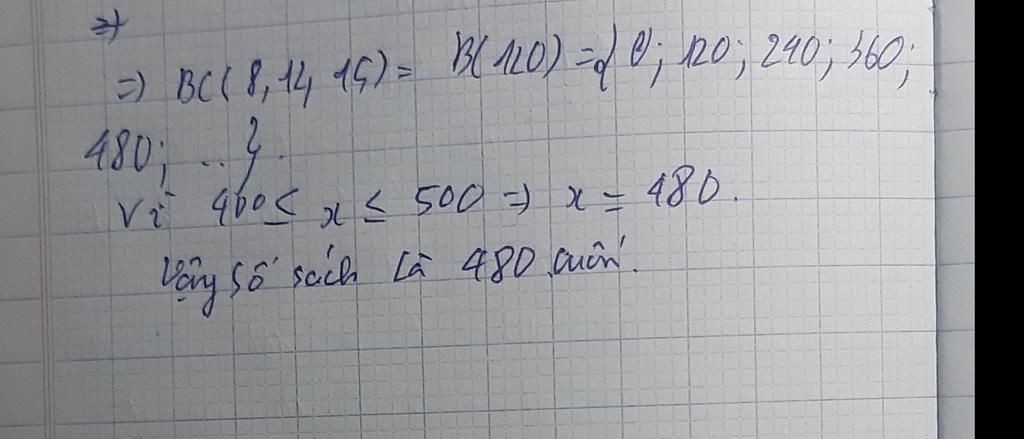 =>
=) BC(8, 12, 15) = B(120) = { 0; 120; 240; 360;
480; ...}.
Vì 400 ≤ x ≤ 500 => x = 480.
Vậy số sách là 480 cuốn.